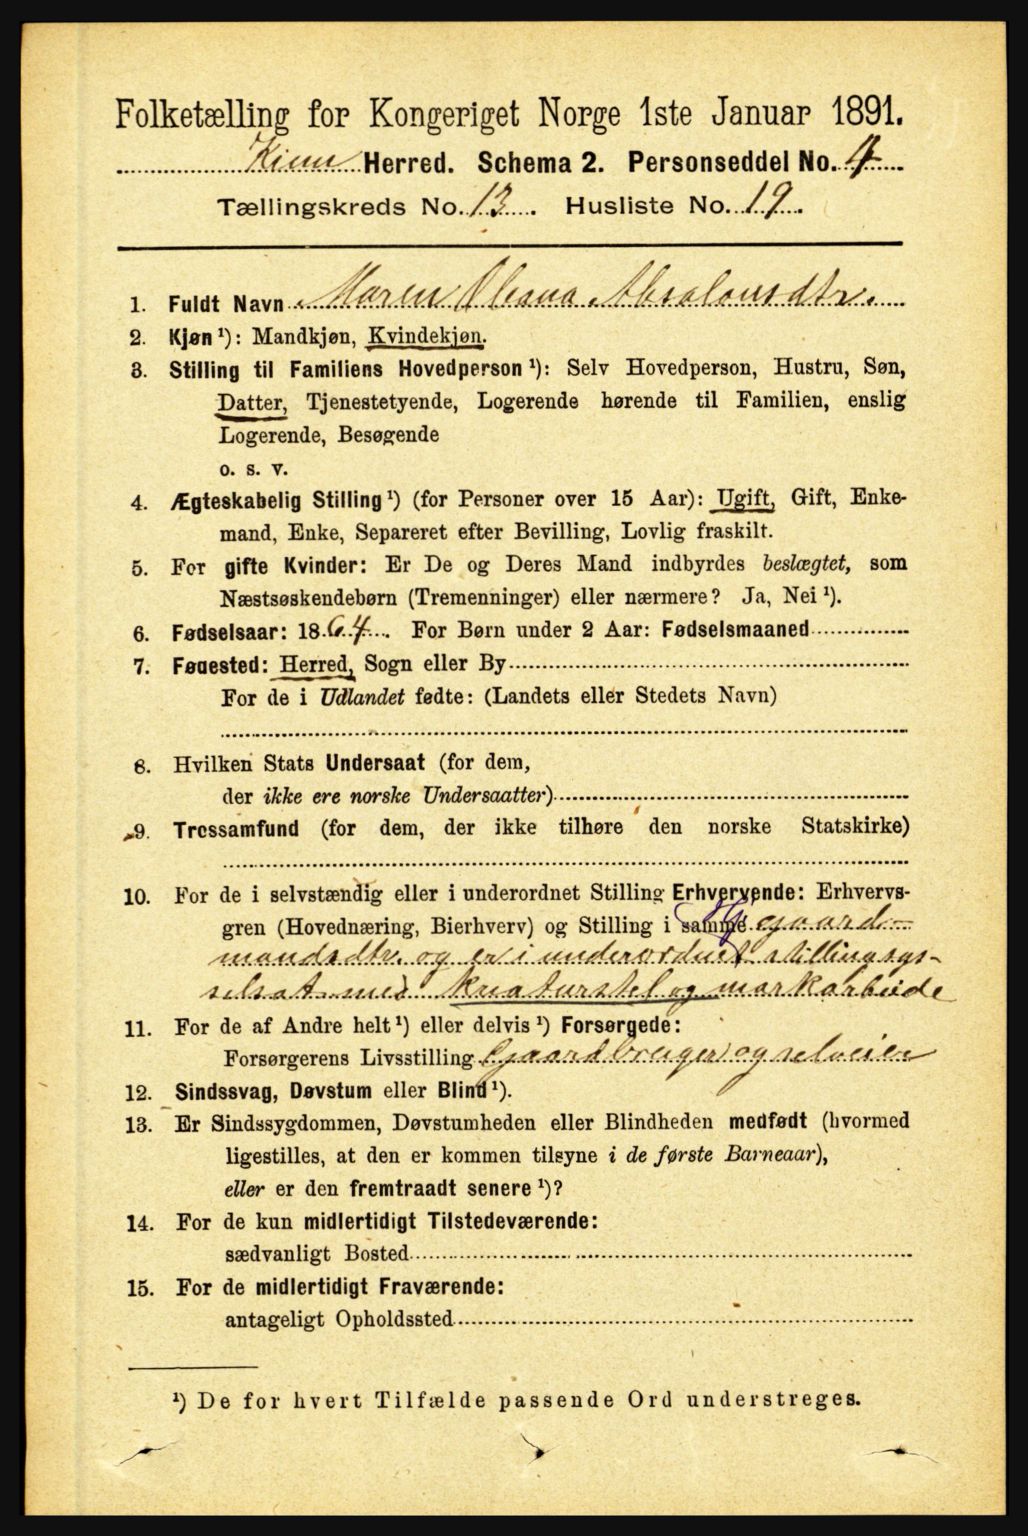 Folketælling for Kongeriget Norge 1ste Januar 1891.
Kinn Herred. Schema 2. Personseddel No. 4
Tællingskreds No. 13. Husliste No. 19.
1. Fuldt Navn Maren Olsena Absalonsdtr.
2. Kjøn ¹): Mandkjøn, Kvindekjøn.
3. Stilling til Familiens Hovedperson ¹): Selv Hovedperson, Hustru, Søn,
Datter, Tjenestetyende, Logerende hørende til Familien, enslig
Logerende, Besøgende
o. s. v.
4. Ægteskabelig Stilling ¹) (for Personer over 15 Aar): Ugift, Gift, Enke-
mand, Enke, Separeret efter Bevilling, Lovlig fraskilt.
5. For gifte Kvinder: Er De og Deres Mand indbyrdes beslægtet, som
Næstsøskendebørn (Tremenninger) eller nærmere? Ja, Nei ¹).
6. Fødselsaar: 1864. For Børn under 2 Aar: Fødselsmaaned
7. Fødested: Herred, Sogn eller By
For de i Udlandet fødte: (Landets eller Stedets Navn)
8. Hvilken Stats Undersaat (for dem,
der ikke ere norske Undersaatter)
9. Trossamfund (for dem, der ikke tilhøre den norske Statskirke)
10. For de i selvstændig eller i underordnet Stilling Erhvervende: Erhvervs-
gren (Hovednæring, Bierhverv) og Stilling i samme gaard-
mandsdtr. og er i underordnet stilling sys-
selsat med kreaturstel og markarbeide
11. For de af Andre helt ¹) eller delvis ¹) Forsørgede:
Forsørgerens Livsstilling Gaardbruger og selveier
12. Sindssvag, Døvstum eller Blind ¹).
13. Er Sindssygdommen, Døvstumheden eller Blindheden medfødt (hvormed
ligestilles, at den er kommen tilsyne i de første Barneaar),
eller er den fremtraadt senere ¹)?
14. For de kun midlertidigt Tilstedeværende:
sædvanligt Bosted
15. For de midlertidigt Fraværende:
antageligt Opholdssted
¹) De for hvert Tilfælde passende Ord understreges.